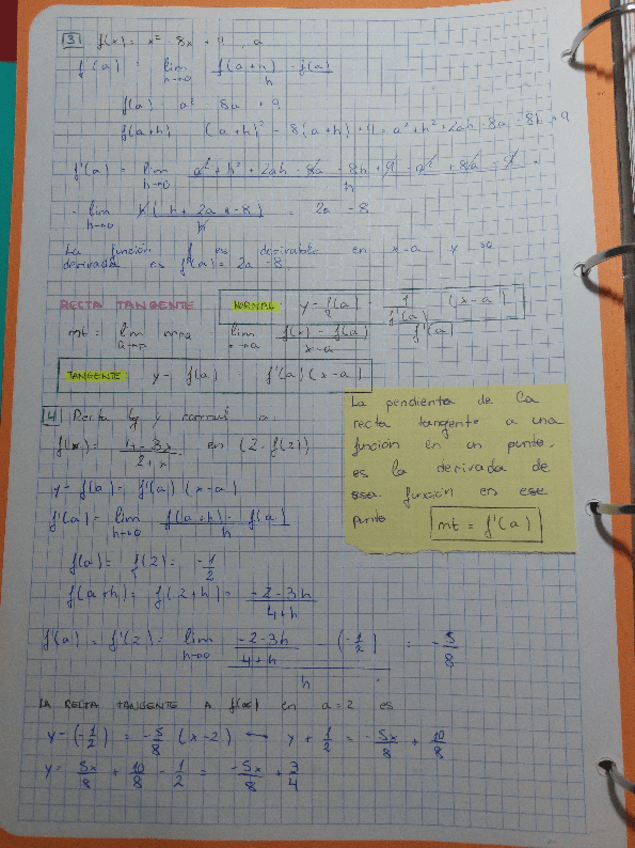 3 f(x) = x² - 8x + 9, a
f'(a) = lim h→0 f(a+h) - f(a) / h
f(a) = a² - 8a + 9
f(a+h) = (a+h)² - 8(a+h) + 9 = a² + h² + 2ah - 8a - 8h + 9
f'(a) = lim h→0 a² + h² + 2ah - 8a - 8h + 9 - a² + 8a - 9 / h =
= lim h→0 h(h + 2a - 8) / h = 2a - 8
La función f es derivable en x=a y su
derivada es f'(a) = 2a - 8
RECTA TANGENTE
NORMAL: y - f(a) = - 1 / f'(a) (x - a)
f'(a)
mt = lim lim x→a f(x) - f(a) / x - a
TANGENTE: y - f(a) = f'(a) (x - a)
4 Recta tg y normal a
f(x) = 4 - 3x / 2 + x en (2, f(2))
y - f(a) = f'(a) (x - a)
f'(a) = lim h→0 f(a+h) - f(a) / h
f(a) = f(2) = -1/2
f(a+h) = f(2+h) = -2-3h / 4+h
f'(a) = f'(2) = lim h→0 -2-3h / 4+h - (-1/2) / h = -5/8
LA RECTA TANGENTE A f(x) en a=2 es
y - (-1/2) = -5/8 (x-2) → y + 1/2 = -5x/8 + 10/8
y = 5x/8 + 10/8 - 1/2 = -5x/8 + 3/4
La pendiente de la
recta tangente a una
función en un punto,
es la derivada de
esa función en ese
punto mt = f'(a)